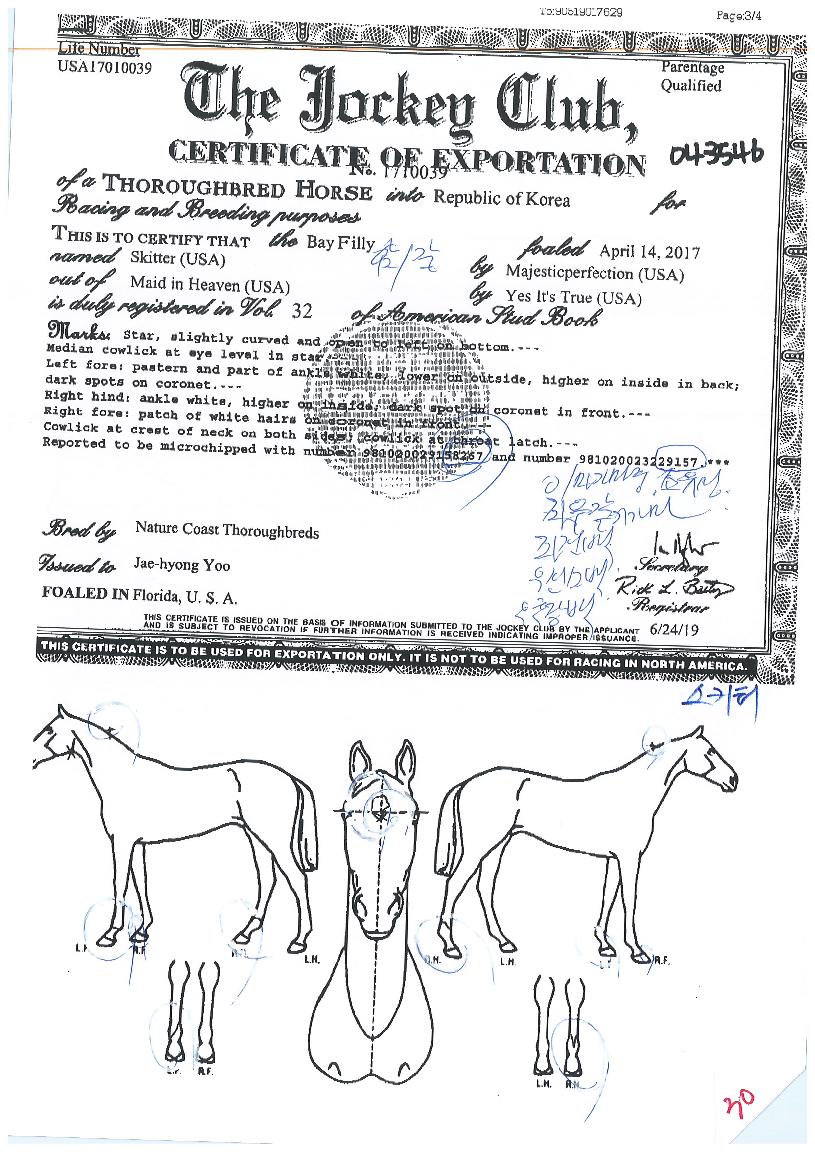 To:90519017629 Page:3/4
Life Number
USA17010039
Parentage
Qualified
The Jockey Club,
CERTIFICATE OF EXPORTATION
043546
No. 1710039
of a THOROUGHBRED HORSE into Republic of Korea for
Racing and Breeding purposes
THIS IS TO CERTIFY THAT the Bay Filly foaled April 14, 2017
named Skitter (USA) by Majesticperfection (USA)
out of Maid in Heaven (USA) by Yes It's True (USA)
is duly registered in Vol. 32 of American Stud Book
Marks: Star, slightly curved and open to left on bottom.---
Median cowlick at eye level in star.---
Left fore: pastern and part of ankle white, lower on outside, higher on inside in back;
dark spots on coronet.---
Right hind: ankle white, higher on inside; dark spot on coronet in front.---
Right fore: patch of white hairs on coronet in front.---
Cowlick at crest of neck on both sides; cowlick at throat latch.---
Reported to be microchipped with number 981020029158267 and number 981020023229157.***
Bred by Nature Coast Thoroughbreds
Issued to Jae-hyong Yoo
Secretary
FOALED IN Florida, U. S. A.
Registrar
THIS CERTIFICATE IS ISSUED ON THE BASIS OF INFORMATION SUBMITTED TO THE JOCKEY CLUB BY THE APPLICANT
AND IS SUBJECT TO REVOCATION IF FURTHER INFORMATION IS RECEIVED INDICATING IMPROPER ISSUANCE.
6/24/19
THIS CERTIFICATE IS TO BE USED FOR EXPORTATION ONLY. IT IS NOT TO BE USED FOR RACING IN NORTH AMERICA.
스키터
L.F. R.F. L.H. L.H. R.F.
L.F. R.F. L.H. R.H.
30